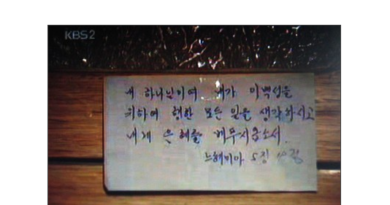 KBS2
내 하나님이여 내가 이백성을
위하여 행한 모든 일을 생각하시고
내게 은혜를 베푸시옵소서
느헤미야 5장 19절